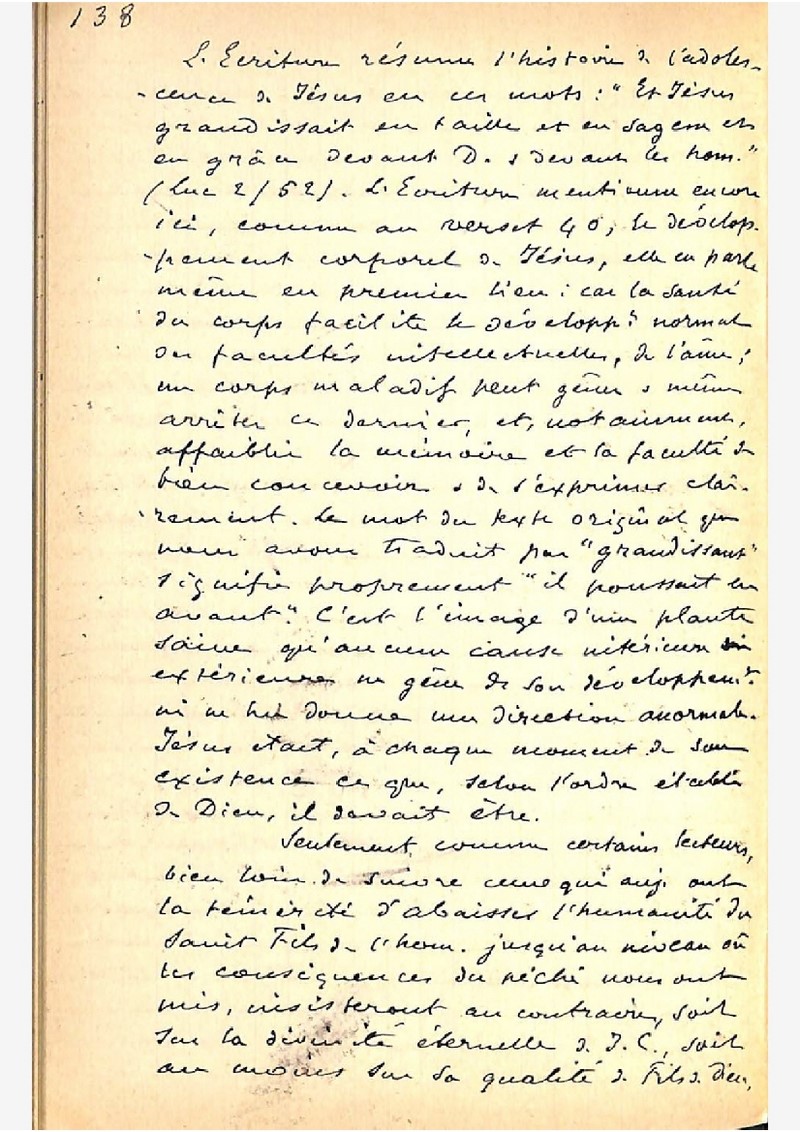 138
L'Ecriture résume l'histoire de l'adoles-
-cence de Jésus en ces mots : "Et Jésus
grandissait en taille et en sagesse et
en grâce devant D. & devant les hom."
(Luc 2/52). L'Ecriture mentionne encore
ici, comme au verset 40, le dévelop-
-pement corporel de Jésus, elle en parle
même en premier lieu : car la santé
du corps facilite le développt normal
des facultés intellectuelles, de l'âme ;
un corps maladif peut gêner & même
arrêter ce dernier, et, notamment,
affaiblir la mémoire et la faculté de
bien concevoir & de s'exprimer clai-
-rement. Le mot du texte original que
nous avons traduit par "grandissait"
signifie proprement "il poussait en
avant". C'est l'image d'une plante
saine qu'aucune cause intérieure
extérieure ne gêne ds son développemt.
ni ne lui donne une direction anormale.
Jésus était, à chaque moment de son
existence ce que, selon l'ordre établi
de Dieu, il devait être.
Seulement comme certains lecteurs,
bien loin de suivre ceux qui auj. ont
la témérité d'abaisser l'humanité du
Saint Fils de l'hom. jusqu'au niveau où
les conséquences du péché nous ont
mis, insisteront au contraire, soit
sur la divinité éternelle de J.C., soit
au moins sur sa qualité de Fils de Dieu,